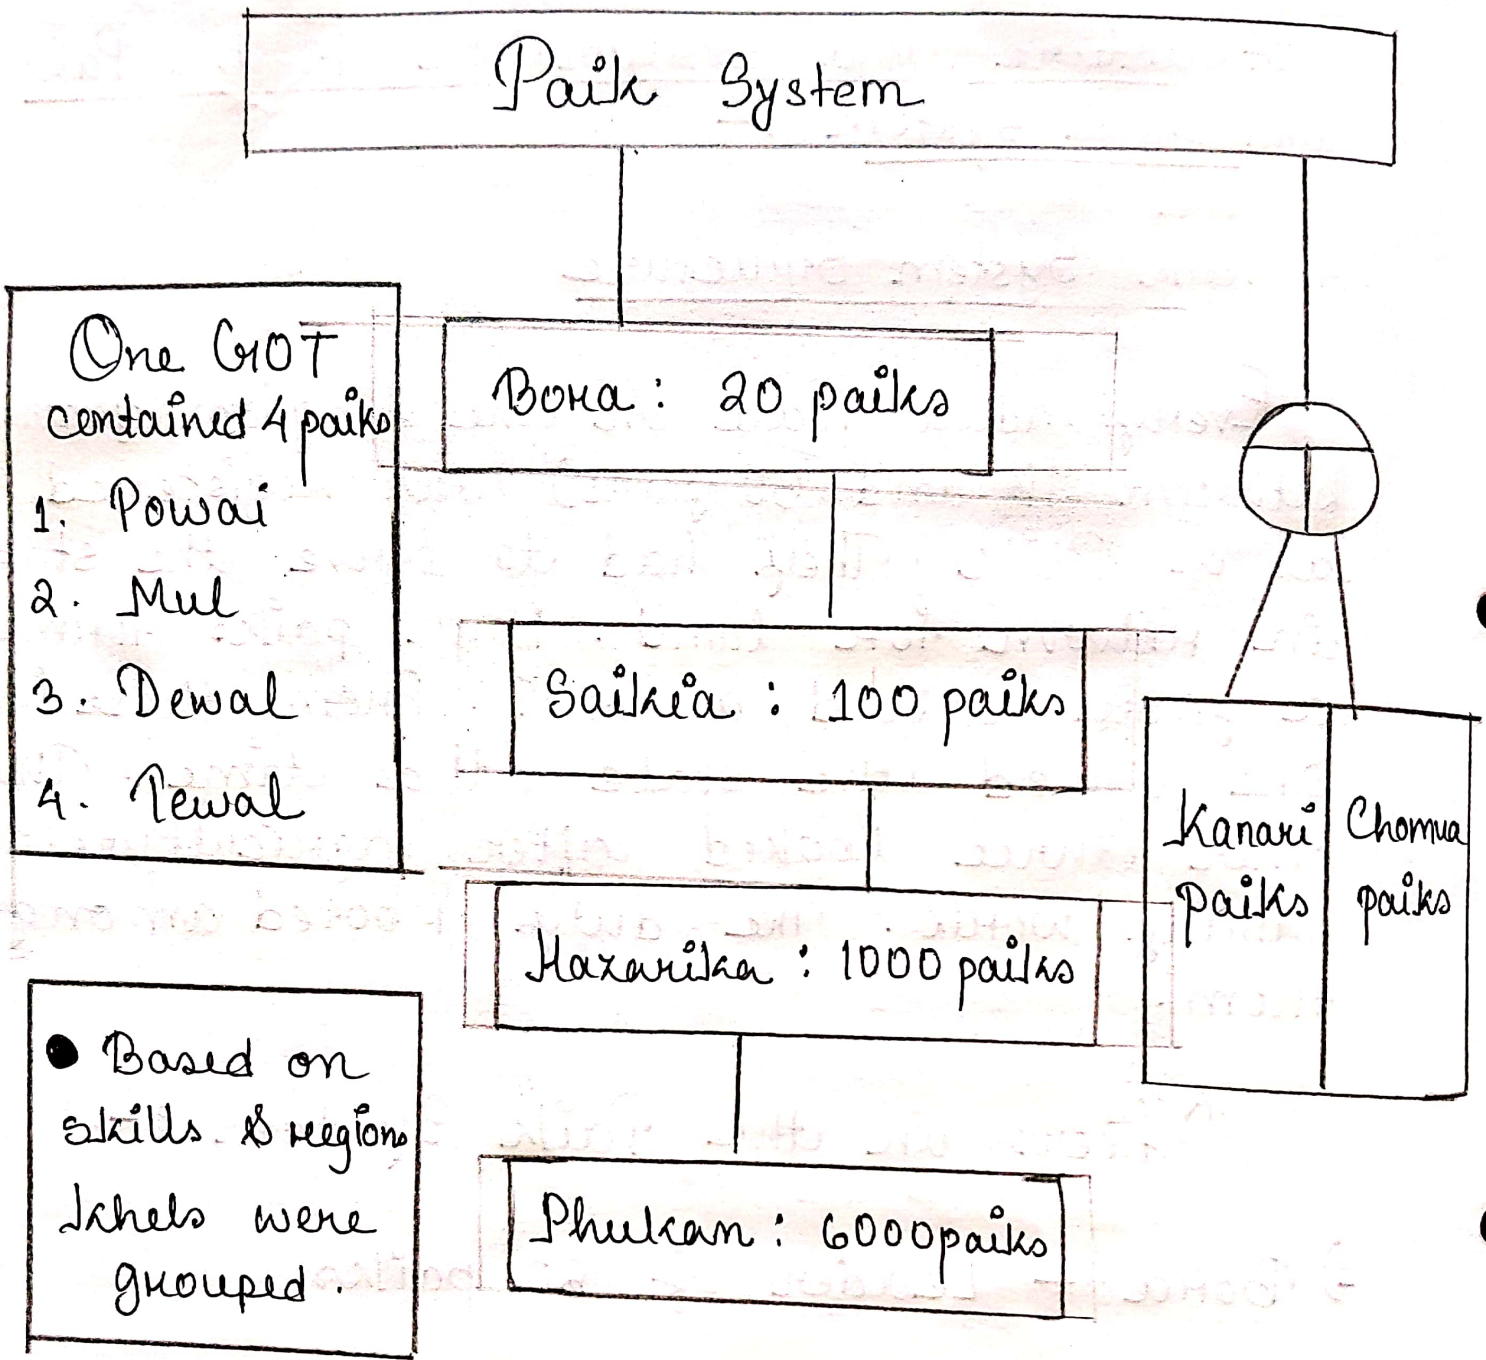 Paik System
One GOT
contained 4 paiks
1. Powai
2. Mul
3. Dewal
4. Tewal
Bora : 20 paiks
Saikia : 100 paiks
Hazarika : 1000 paiks
Phukan : 6000 paiks
Kanari
paiks
Chomua
paiks
● Based on
skills & regions
khels were
grouped.